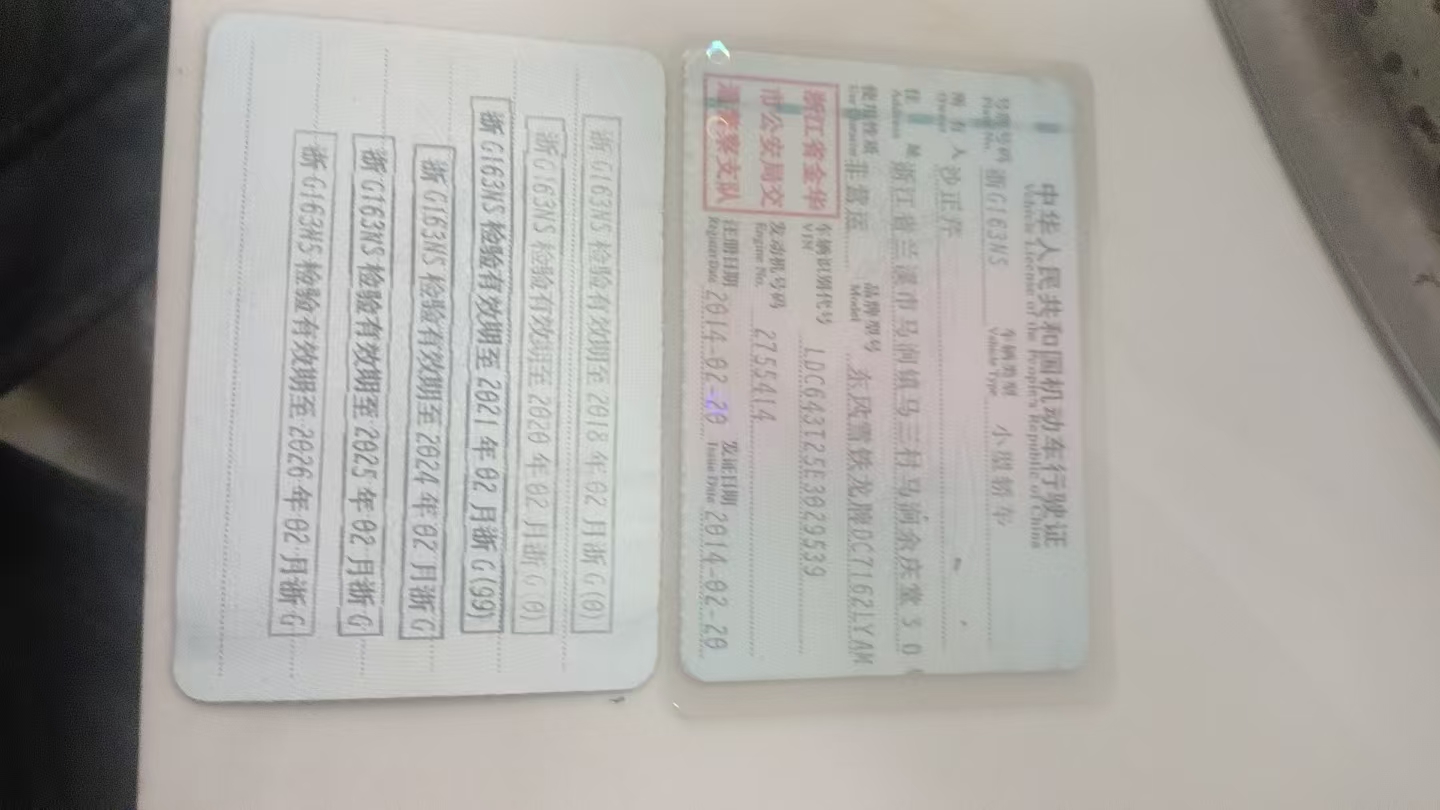 中华人民共和国机动车行驶证
Vehicle License of the People's Republic of China
号牌号码 浙G163NS 车辆类型 小型轿车
Plate No. Vehicle Type
所有人 沙正芹
Owner
住址 浙江省兰溪市马涧镇马兰村马涧余庆堂50
Address
使用性质 非营运 品牌型号 东风雪铁龙牌DC7162LYAM
Use Character Model
浙江省金华市公安局交通警察支队
车辆识别代号 LDC643T25E3029539
VIN
发动机号码 2755414
Engine No.
注册日期 2014-02-20 发证日期 2014-02-20
Register Date Issue Date
浙G163NS 检验有效期至 2018 年 02 月浙 G(0)
浙G163NS 检验有效期至 2020 年 02 月浙 G(0)
浙G163NS 检验有效期至 2021 年 02 月浙 G(99)
浙G163NS 检验有效期至 2024 年 02 月浙 G
浙G163NS 检验有效期至 2025 年 02 月浙 G
浙G163NS 检验有效期至 2026 年 02 月浙 G